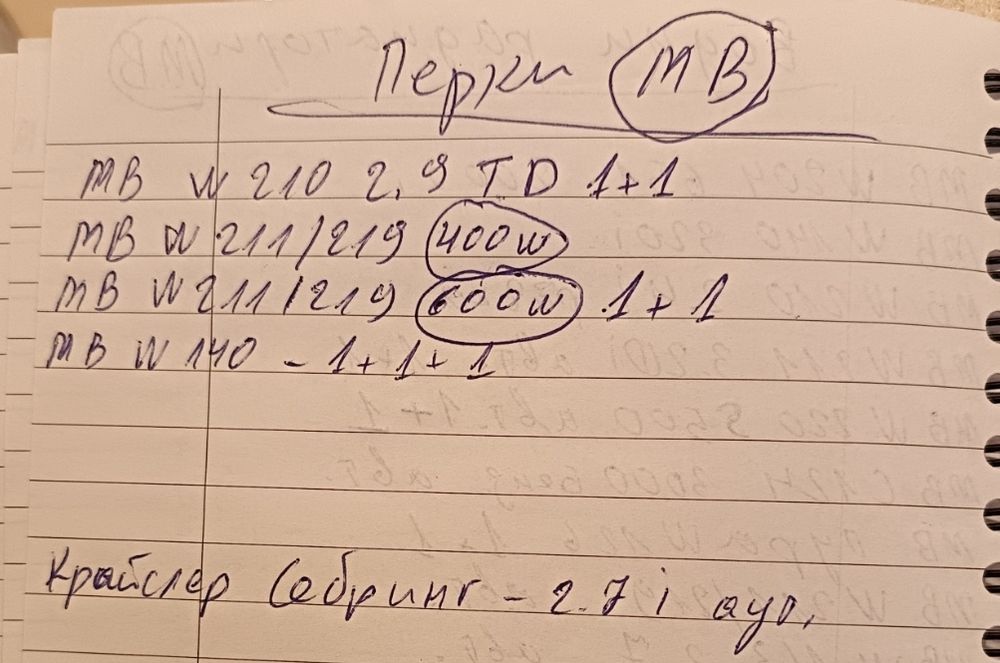 Перки MB
MB W 210 2,9 TD 1+1
MB W 211/219 400w
MB W 211/219 600w 1+1
MB W 140 - 1+1+1
Крайслер Себринг - 2.7i